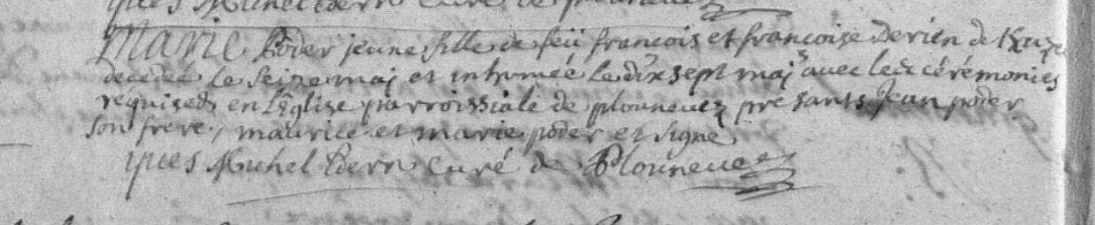 yves Michel curé de
Marie Poder jeune fille de feü francois et francoise Derien de
decedee le seize maj et inhumée le dix sept maj avec les cérémonies
requises en l'Eglise parroissiale de plouneuez presants Jean poder
son frere, maurice et marie poder et signe
yves Michel curé de Plouneuez